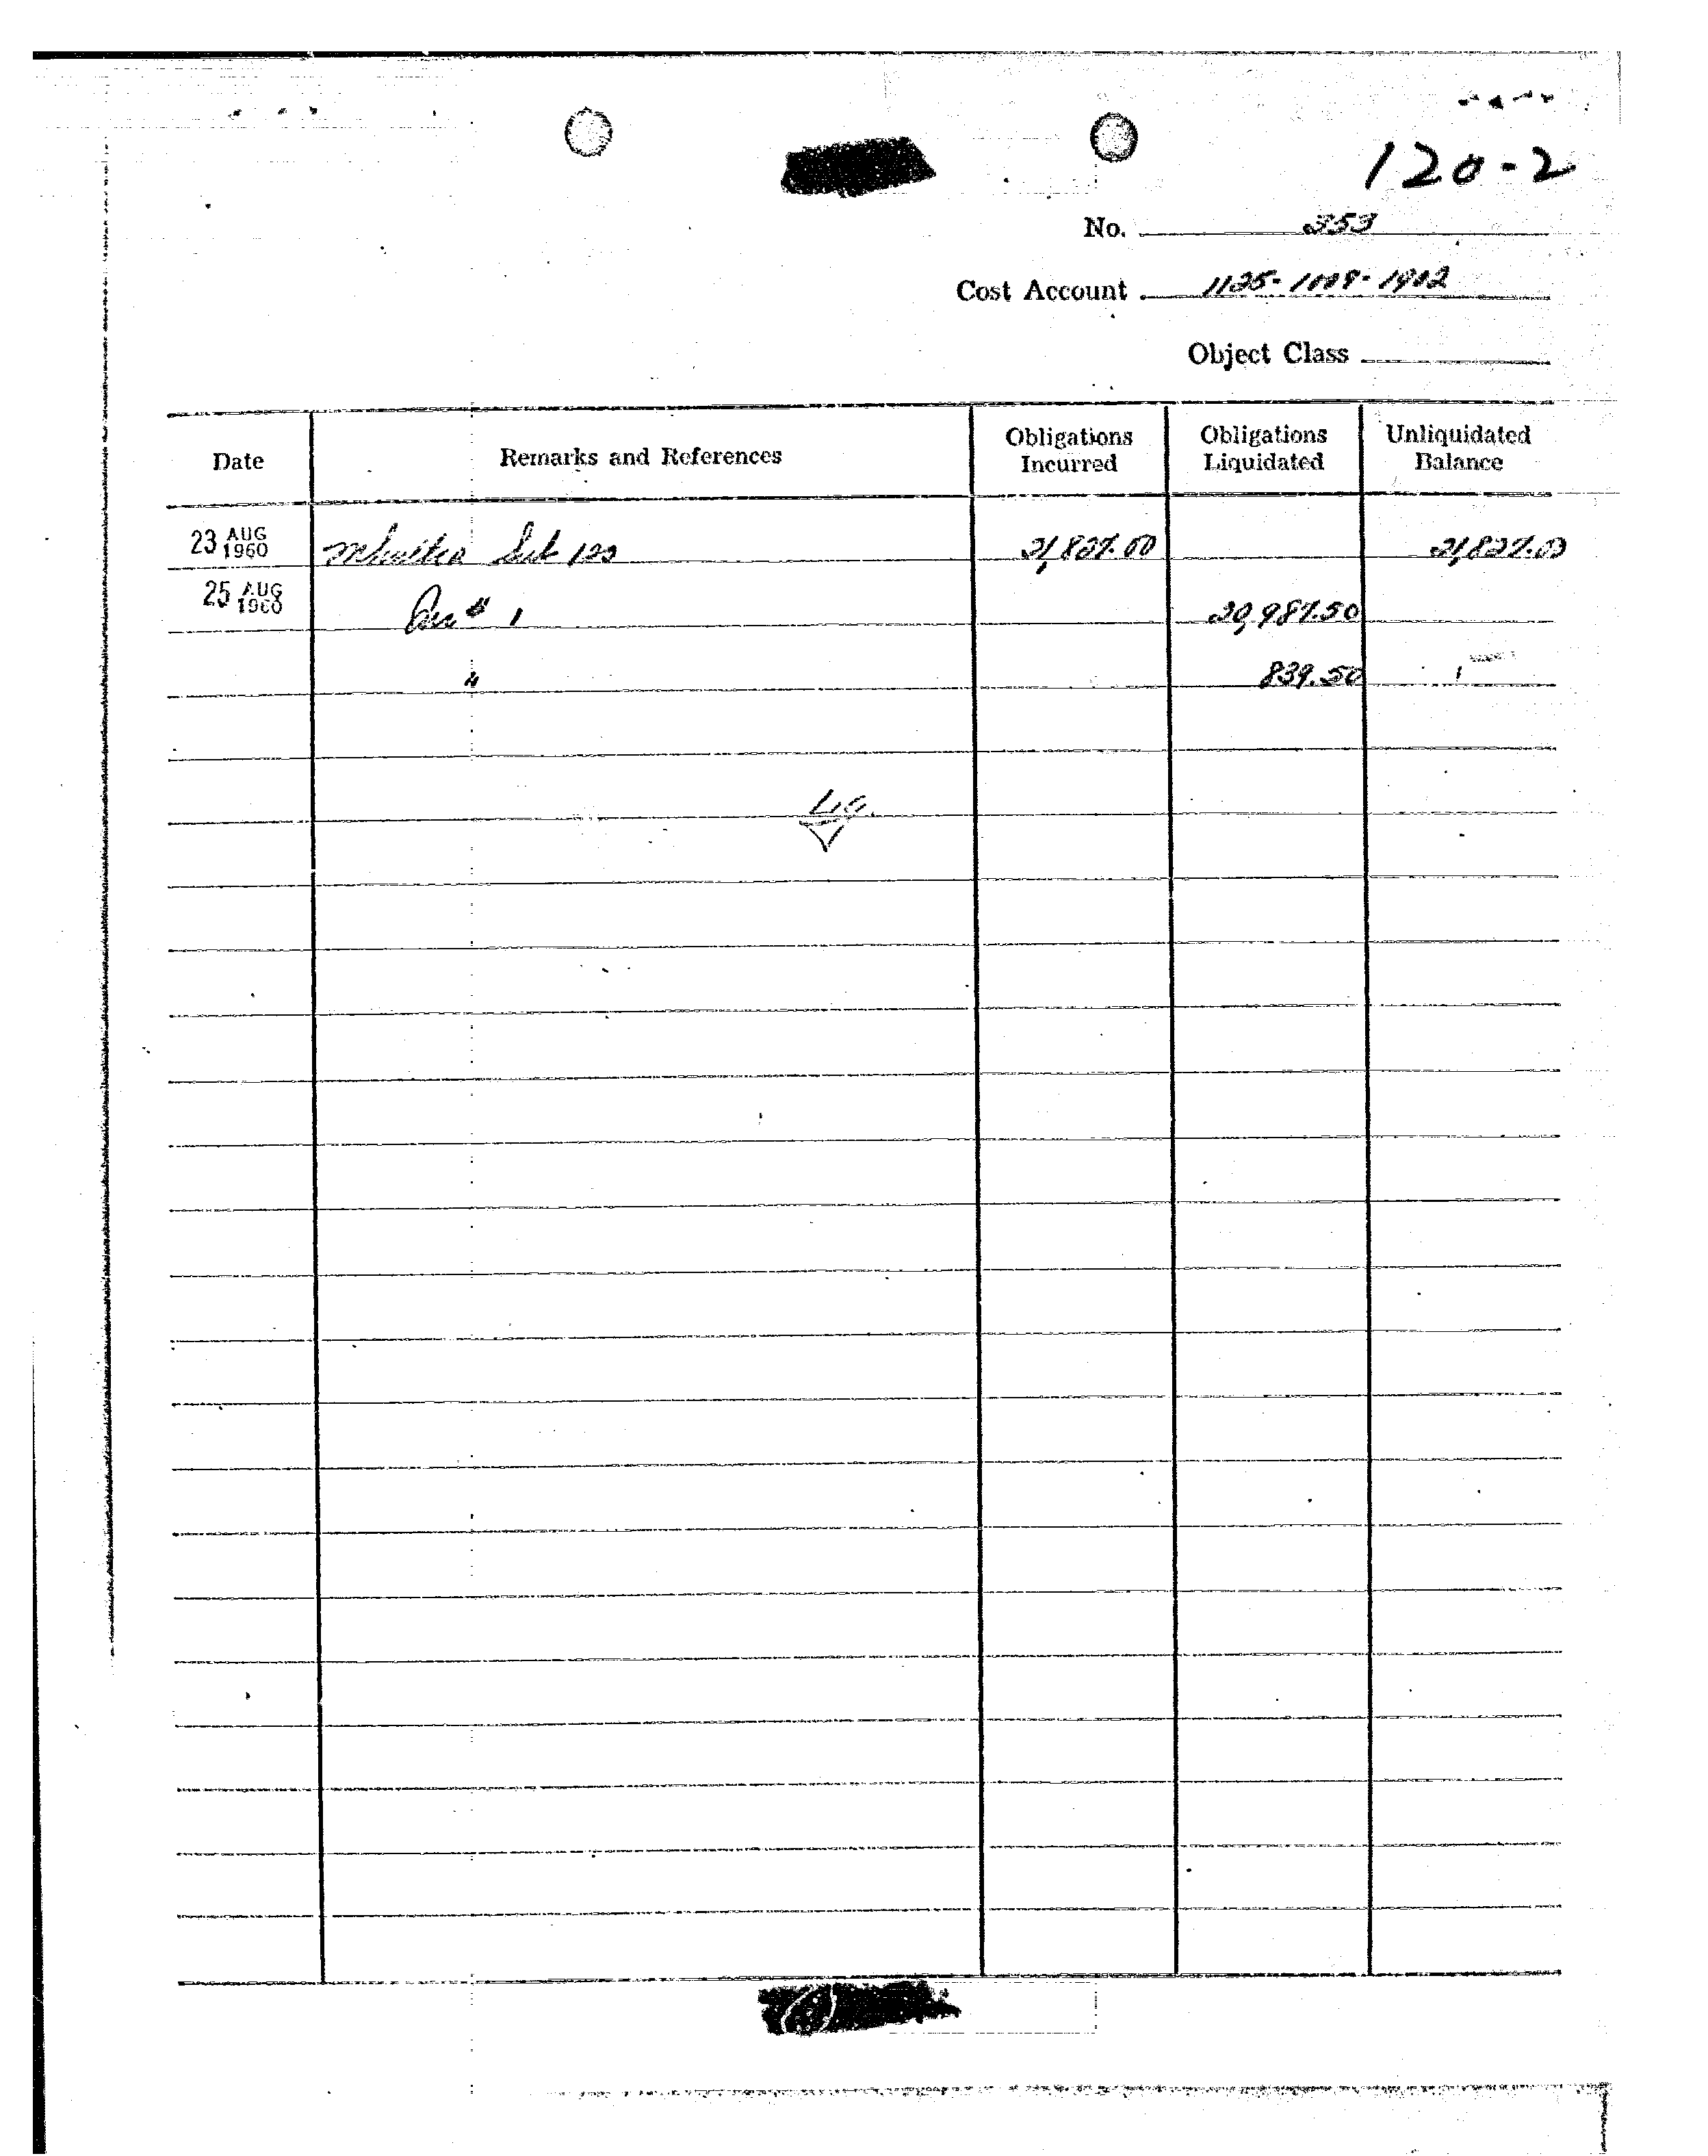 120-2
No. 353
Cost Account 1125-1009-1902
Object Class
Date Remarks and References Obligations Incurred Obligations Liquidated Unliquidated Balance
23 AUG 1960 120 21,827.00 21,827.00
25 AUG 1960 # 1 20,987.50
" 839.50